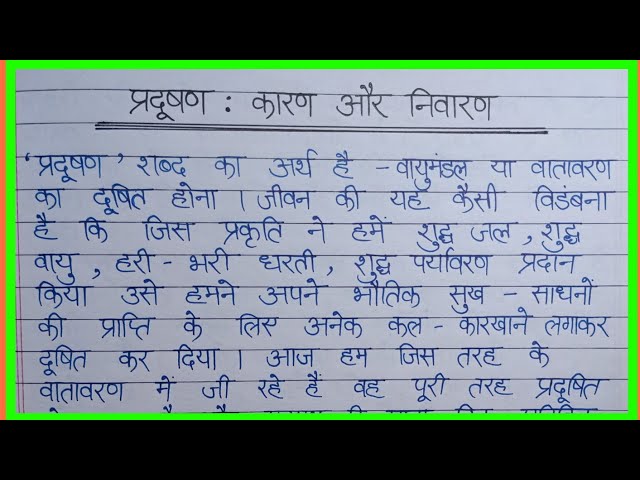 प्रदूषण : कारण और निवारण
'प्रदूषण' शब्द का अर्थ है - वायुमंडल या वातावरण
का दूषित होना । जीवन की यह कैसी विडंबना
है कि जिस प्रकृति ने हमें शुद्ध जल , शुद्ध
वायु , हरी - भरी धरती , शुद्ध पर्यावरण प्रदान
किया उसे हमने अपने भौतिक सुख - साधनों
की प्राप्ति के लिस अनेक कल - कारखाने लगाकर
दूषित कर दिया । आज हम जिस तरह के
वातावरण में जी रहे हैं वह पूरी तरह प्रदूषित